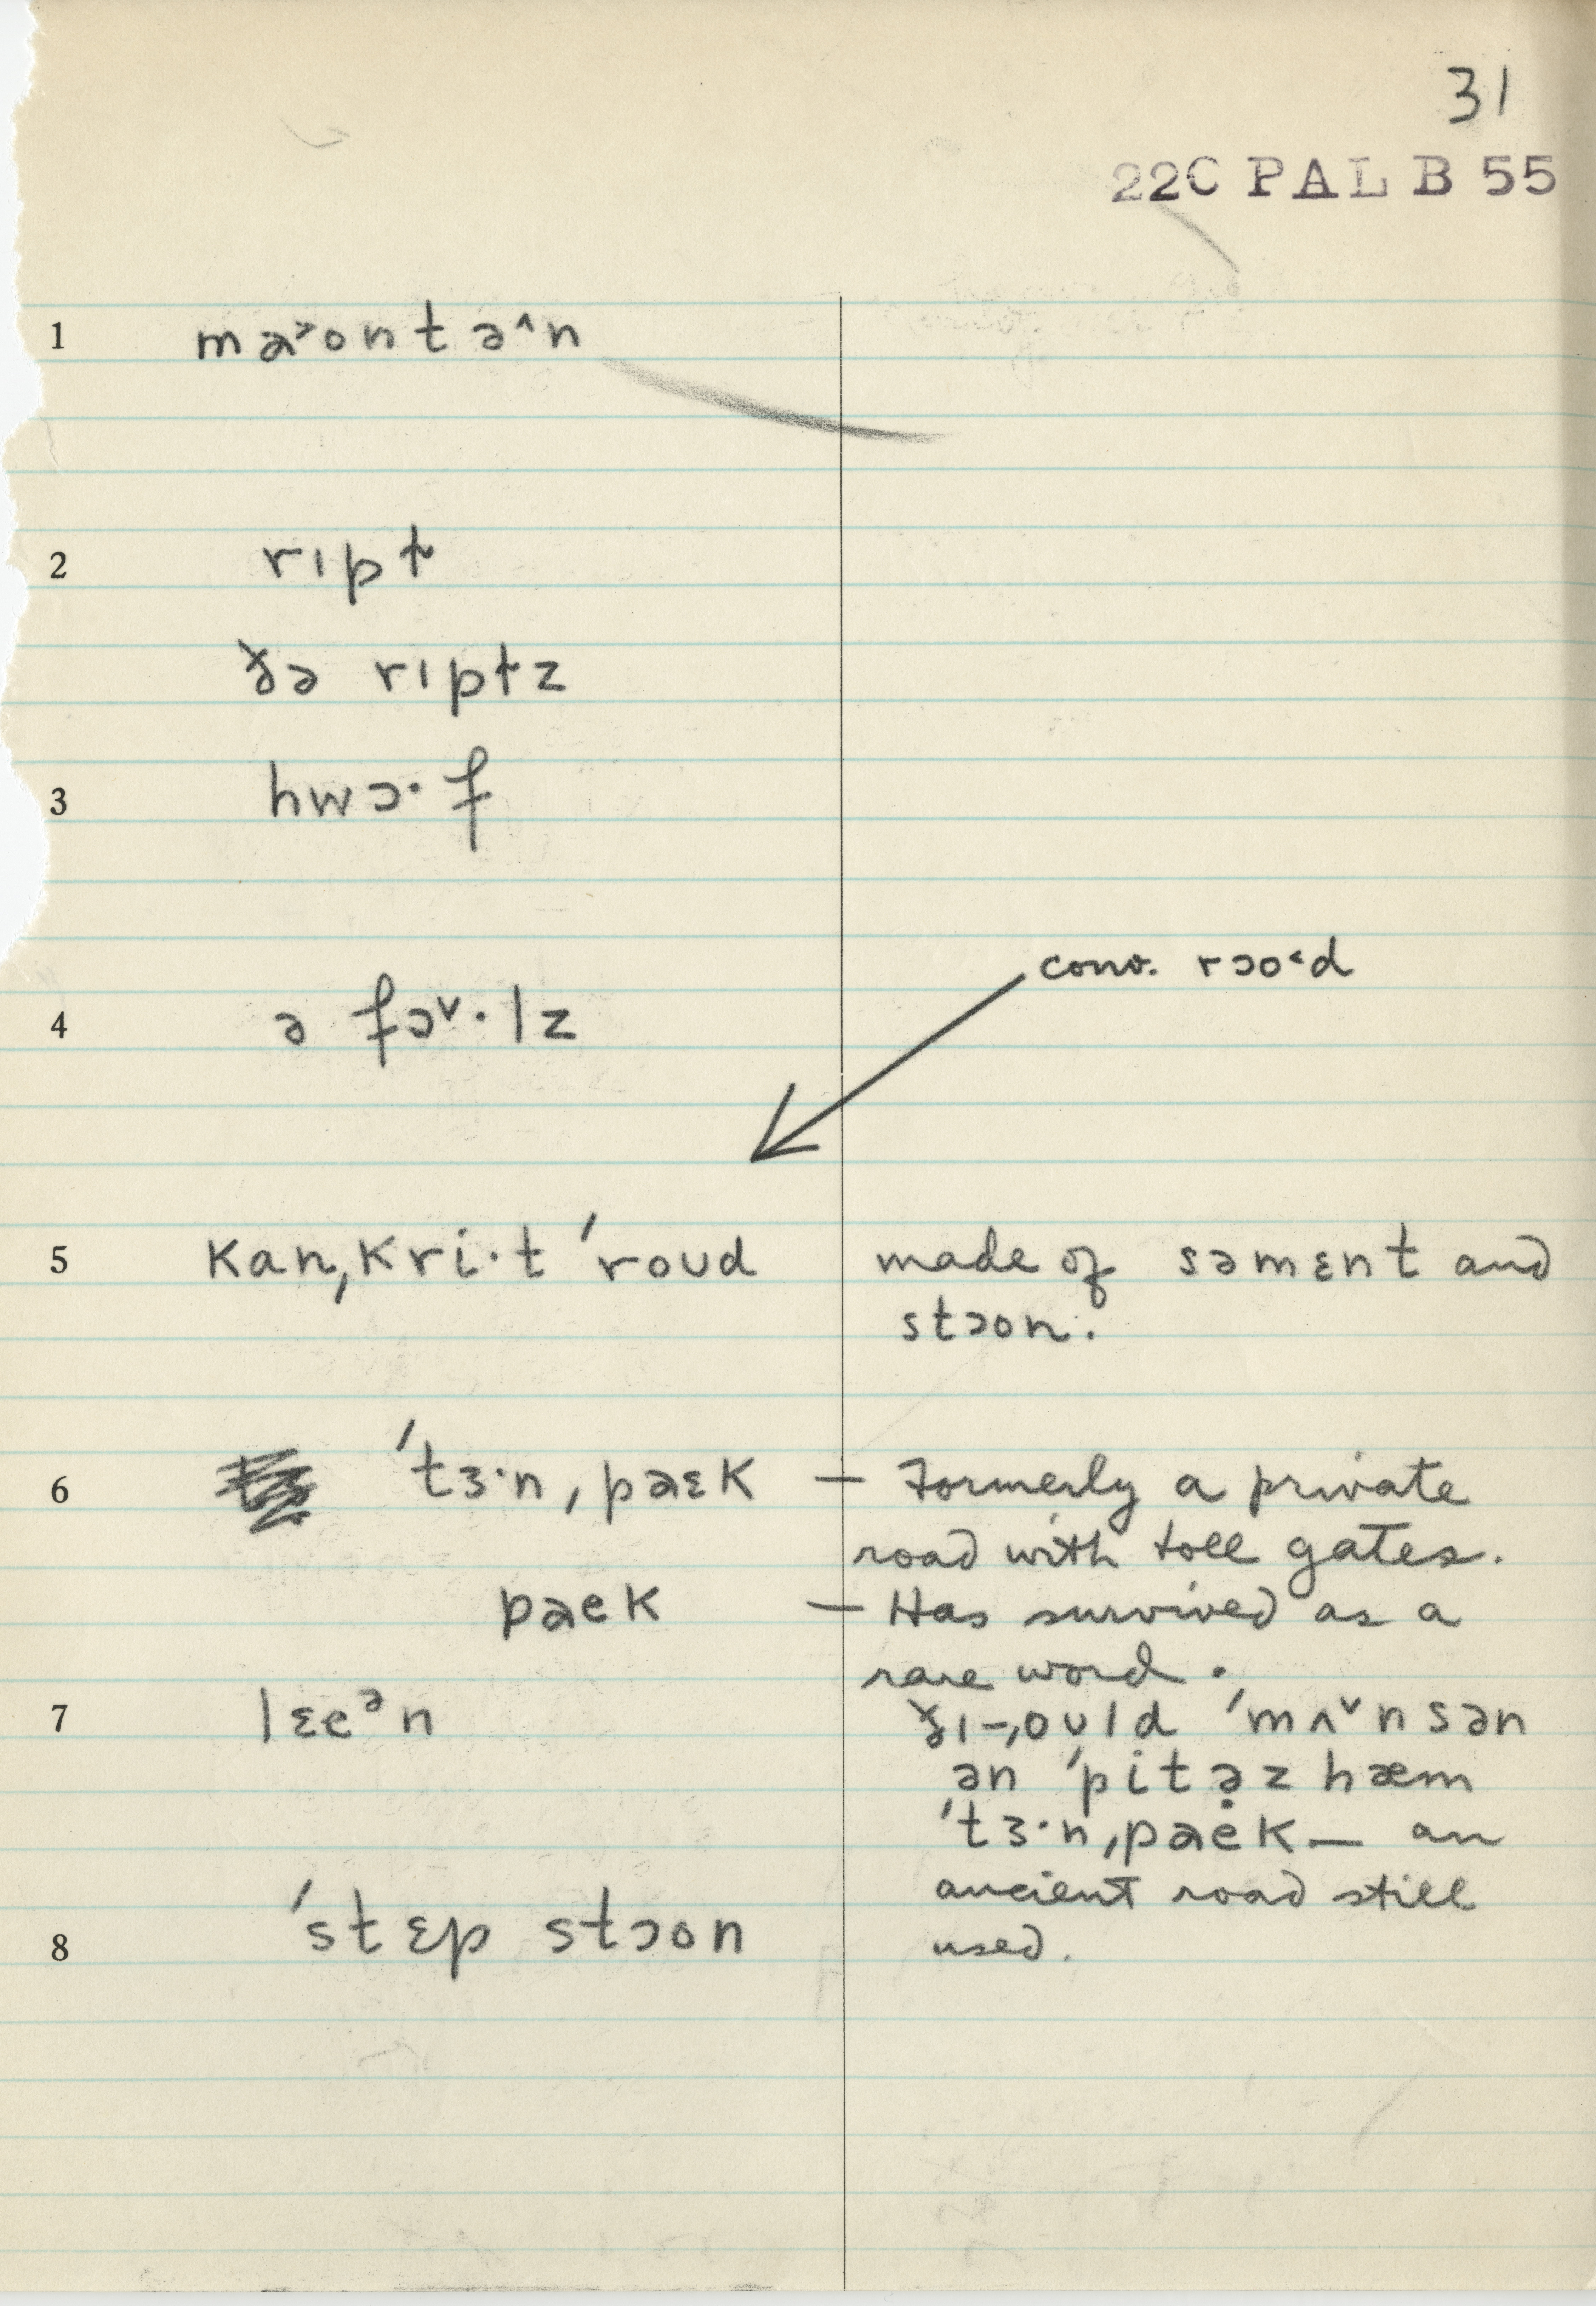 31
22C PAL B 55
1 ma˃ontə^n
2 rɪpt
ðə rɪptz
3 hwɔ·f
conv. rɔo˂d
4 ə fɔ˅·lz
5 kanˌkri·t ˈroʊd made of səmɛnt and
stɔon.
6 ˈtɜ·nˌpaɛk — Formerly a private
road with toll gates.
paek — Has survived as a
rare word.
7 lɛeᵊn ðɪ-ˌoʊld ˈmʌ˅nsən
ən ˈpitəz hæm
ˈtɜ·nˌpaek — an
ancient road still
8 ˈstɛp stɔon used.